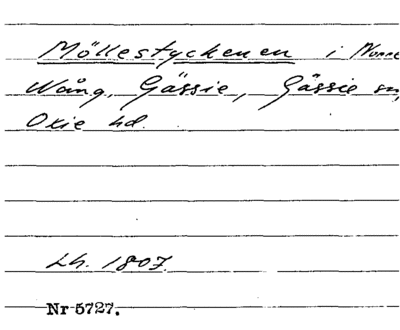 Möllestyckenen i Norre
Wång, Gässie, Gässie sn,
Oxie hd.
Lh. 1807.
Nr 5727.